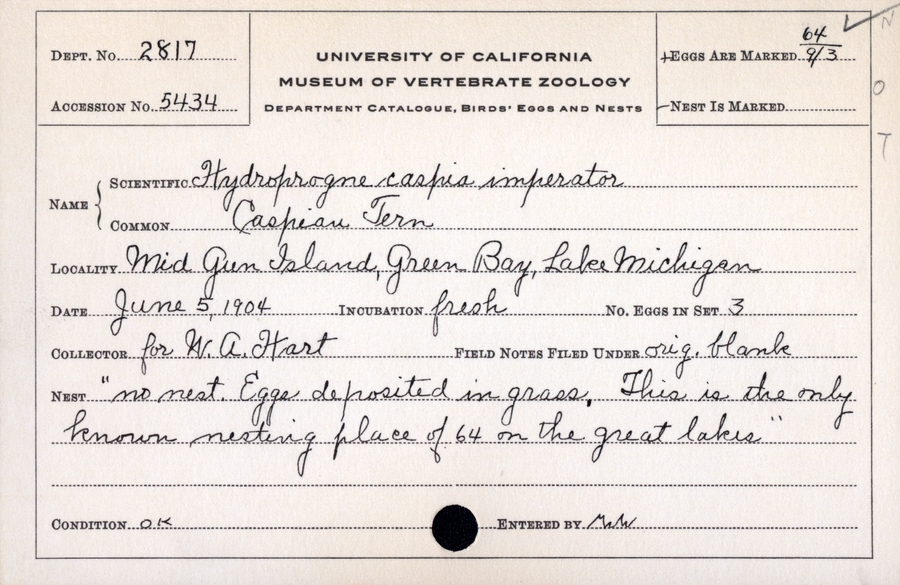 DEPT. NO. 2817
ACCESSION NO. 5434
UNIVERSITY OF CALIFORNIA
MUSEUM OF VERTEBRATE ZOOLOGY
DEPARTMENT CATALOGUE, BIRDS' EGGS AND NESTS
EGGS ARE MARKED 64
9/3
NEST IS MARKED
N
O
T
NAME
SCIENTIFIC Hydroprogne caspia imperator
COMMON Caspian Tern
LOCALITY Mid Gun Island, Green Bay, Lake Michigan
DATE June 5, 1904 INCUBATION fresh NO. EGGS IN SET 3
COLLECTOR for W. A. Hart FIELD NOTES FILED UNDER orig. blank
NEST "no nest. Eggs deposited in grass. This is the only
known nesting place of 64 on the great lakes"
CONDITION OK ENTERED BY